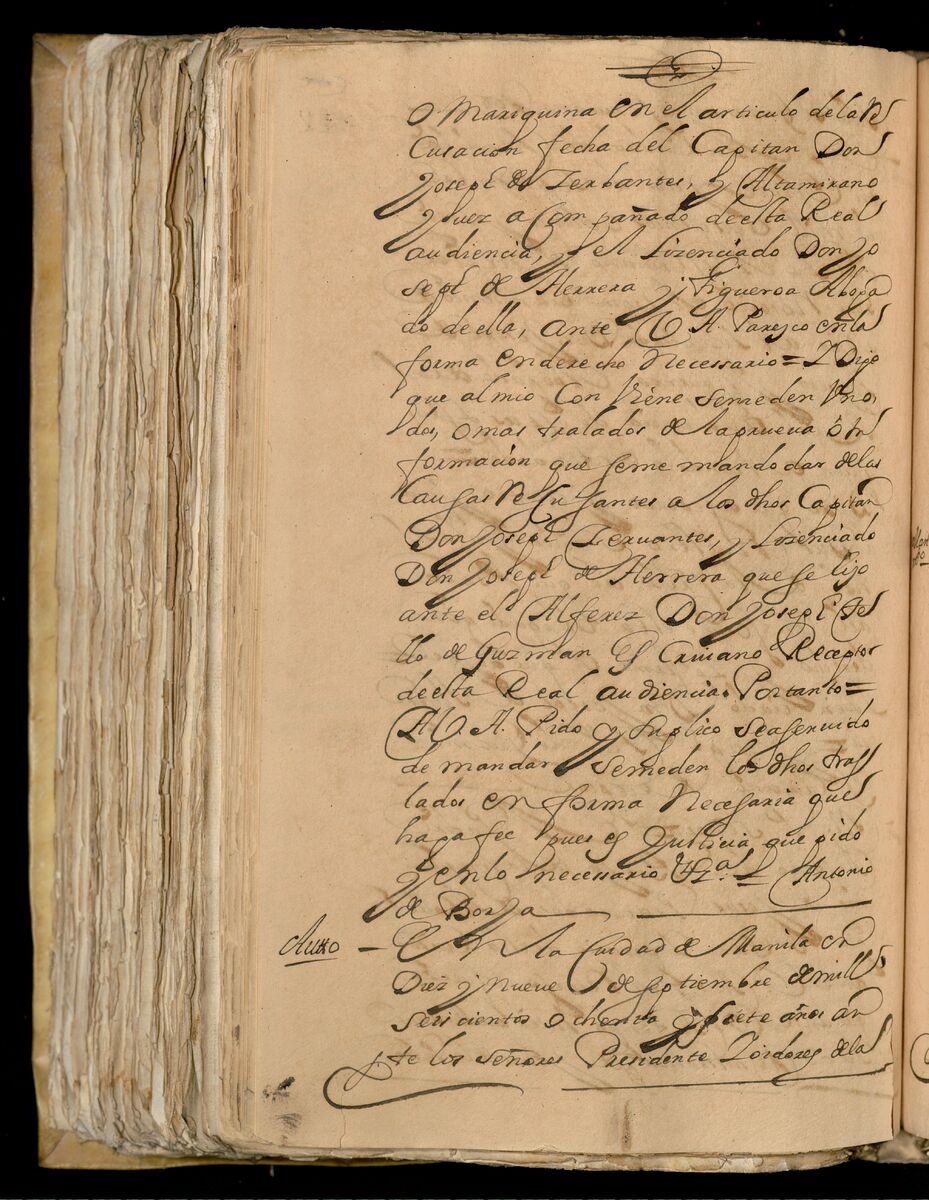 o Mariquina en el articulo de la re
cusacion fecha del Capitan Don
Joseph de Zerbantes, y Altamirano
Juez acompañado de esta Real
audiencia, y el Lizenciado Don Jo
seph de Herrera y Figueroa Aboga
do de ella, ante V. A. Paresco en la
forma en derecho necessario = Y Digo
que al mio Con Viene se me den Vno,
dos, o mas tralados de la prueva o in
formación que se me mando dar de las
Causas Recusantes a los dhos Capitan
Don Joseph Zervantes, y Lizenciado
Don Joseph de Herrera que se hizo
ante el Alferez Don Joseph Te
llo de Guzman Escriuano Receptor
de esta Real audiencia. Por tanto =
A V. A. Pido y suplico sea seruido
de mandar se me den los dhos tras
lados en forma Necesaria que
haga fee pues es Justicia que pido
y en lo necessario &ra. = Antonio
de Borja
Autto – En la Ciudad de Manila en
Diez y nueve de septiembre de mill
seiscientos ochenta y siete años an
te los señores Presidente y oidores de la